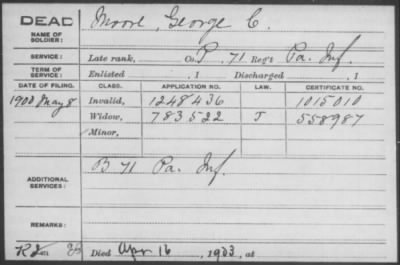 DEAD
NAME OF SOLDIER: Moore, George C.
SERVICE: Late rank, Co. P, 71 Reg't Pa. Inf.
TERM OF SERVICE: Enlisted , 1 Discharged , 1
DATE OF FILING. CLASS. APPLICATION NO. LAW. CERTIFICATE NO.
1900 May 8 Invalid, 1248436 1015010
Widow, 783522 J 558987
Minor,
ADDITIONAL SERVICES: B 71 Pa. Inf.
REMARKS:
Died Apr 16, 1903, at